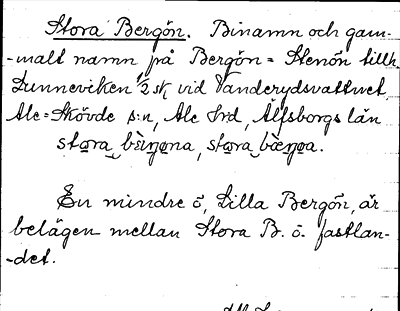 Stora Bergön. Binamn och gam-
-malt namn på Bergön = Stenön tillh.
Dunneviken 1/2 sk vid Vanderydsvattnet,
Ale=Skövde s:n, Ale Hrd, Älfsborgs län
stora
En mindre ö, Lilla Bergön, är
belägen mellan Stora B. o. fastlan-
-det.